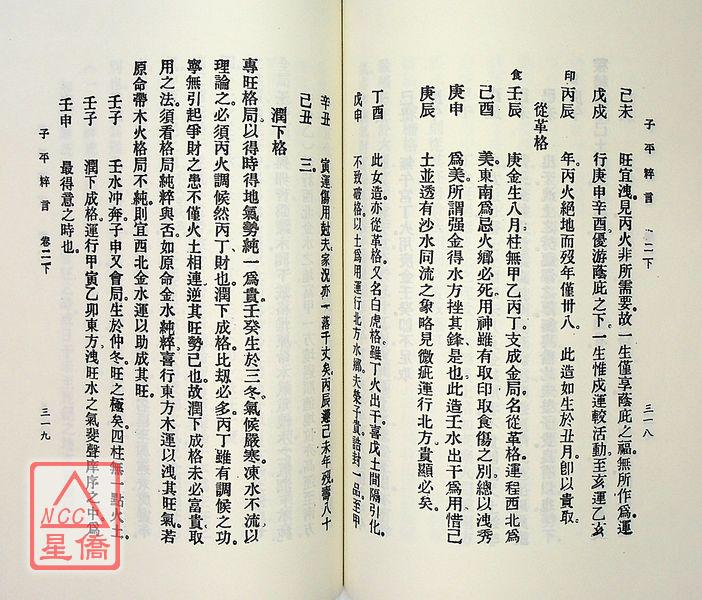 子平粹言 二下 三一八
己未 旺宜洩見丙火非所需要故一生僅享蔭庇之福無所作爲運
戊戌 行庚申辛酉優游蔭庇之下一生惟戌運較活動至亥運乙亥
印 丙辰 年丙火絕地而歿年僅卅八 此造如生於丑月卽以貴取
從革格
食 壬辰 庚金生八月柱無甲乙丙丁支成金局名從革格運程西北爲
己酉 美東南爲忌火鄉必死用神雖有取印取食傷之別總以洩秀
庚申 爲美所謂强金得水方挫其鋒是也此造壬水出干爲用惜己
庚辰 土並透有沙水同流之象略見微疵運行北方貴顯必矣
丁酉 此女造亦從革格又名白虎格雖丁火出干喜戊土間隔引化
戊申 不致破格以土爲用運行北方水鄉夫榮子貴誥封一品至甲
辛丑 寅運傷用尅夫家況亦一落千丈矣丙辰運己未年歿壽八十
己丑 三
潤下格
專旺格局以得時得地氣勢純一爲貴壬癸生於三冬氣候嚴寒凍水不流以
理論之必須丙火調候然丙丁財也潤下成格比刼必多丙丁雖有調候之功
寧無引起爭財之患不僅火土相連逆其旺勢已也故潤下成格未必富貴取
用之法須看格局純粹與否如原命金水純粹喜行東方木運以洩其旺氣若
原命帶木火格局不純則宜西北金水運以助成其旺
壬子 壬水冲奔子申又會局生於仲冬旺之極矣四柱無一點火土
壬子 潤下成格運行甲寅乙卯東方洩旺水之氣蜚聲庠序之中爲
壬申 最得意之時也
子平粹言 卷二下 三一九
NCC
星僑